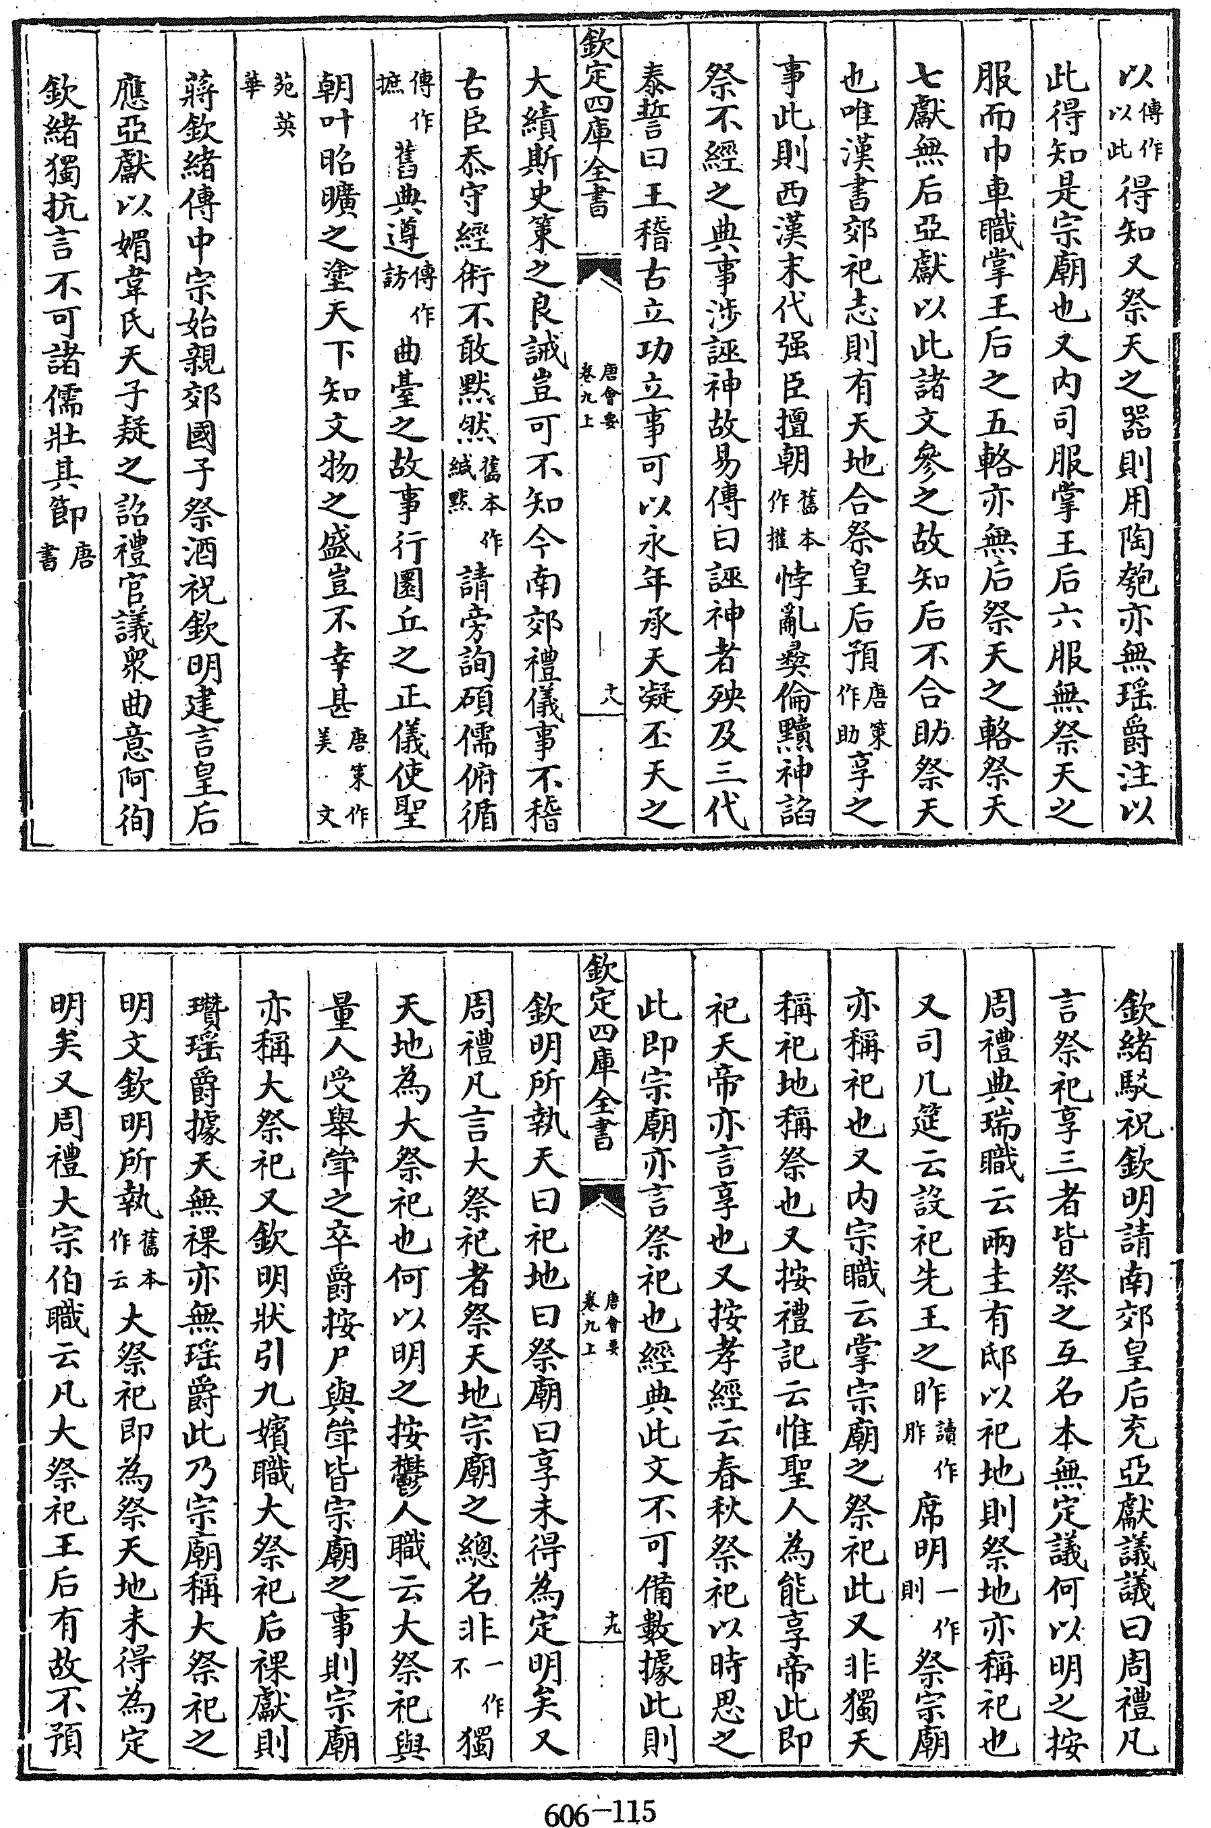 以傳作以此得知又祭天之器則用陶匏亦無瑶爵注以
此得知是宗廟也又内司服掌王后六服無祭天之
服而巾車職掌王后之五輅亦無后祭天之輅祭天
七獻無后亞獻以此諸文參之故知后不合助祭天
也唯漢書郊祀志則有天地合祭皇后預唐策作助享之
事此則西漢末代强臣擅朝舊本作摧悖亂彛倫黷神諂
祭不經之典事涉誣神故易傳曰誣神者殃及三代
泰誓曰王稽古立功立事可以永年承天凝丕天之
欽定四庫全書
唐會要
卷九上
十八
大績斯史策之良誡豈可不知今南郊禮儀事不稽
古臣忝守經術不敢默然舊本作緘默請旁詢碩儒俯循
傳作摭舊典遵傳作訪曲臺之故事行圜丘之正儀使聖
朝叶昭曠之塗天下知文物之盛豈不幸甚唐策作美 文
苑英華
蔣欽緒傳中宗始親郊國子祭酒祝欽明建言皇后
應亞獻以媚韋氏天子疑之詔禮官議衆曲意阿徇
欽緒獨抗言不可諸儒壯其節唐書
欽緒駁祝欽明請南郊皇后充亞獻議議曰周禮凡
言祭祀享三者皆祭之互名本無定議何以明之按
周禮典瑞職云兩圭有邸以祀地則祭地亦稱祀也
又司几筵云設祀先王之昨讀作胙席明一作則祭宗廟
亦稱祀也又内宗職云掌宗廟之祭祀此又非獨天
稱祀地稱祭也又按禮記云惟聖人為能享帝此即
祀天帝亦言享也又按孝經云春秋祭祀以時思之
此即宗廟亦言祭祀也經典此文不可備數據此則
欽定四庫全書
唐會要
卷九上
十九
欽明所執天曰祀地曰祭廟曰享未得為定明矣又
周禮凡言大祭祀者祭天地宗廟之總名非一作不獨
天地為大祭祀也何以明之按鬱人職云大祭祀與
量人受舉斝之卒爵按尸與斝皆宗廟之事則宗廟
亦稱大祭祀又欽明狀引九嬪職大祭祀后祼獻則
瓚瑶爵據天無祼亦無瑶爵此乃宗廟稱大祭祀之
明文欽明所執舊本作云大祭祀即為祭天地未得為定
明矣又周禮大宗伯職云凡大祭祀王后有故不預
606-115